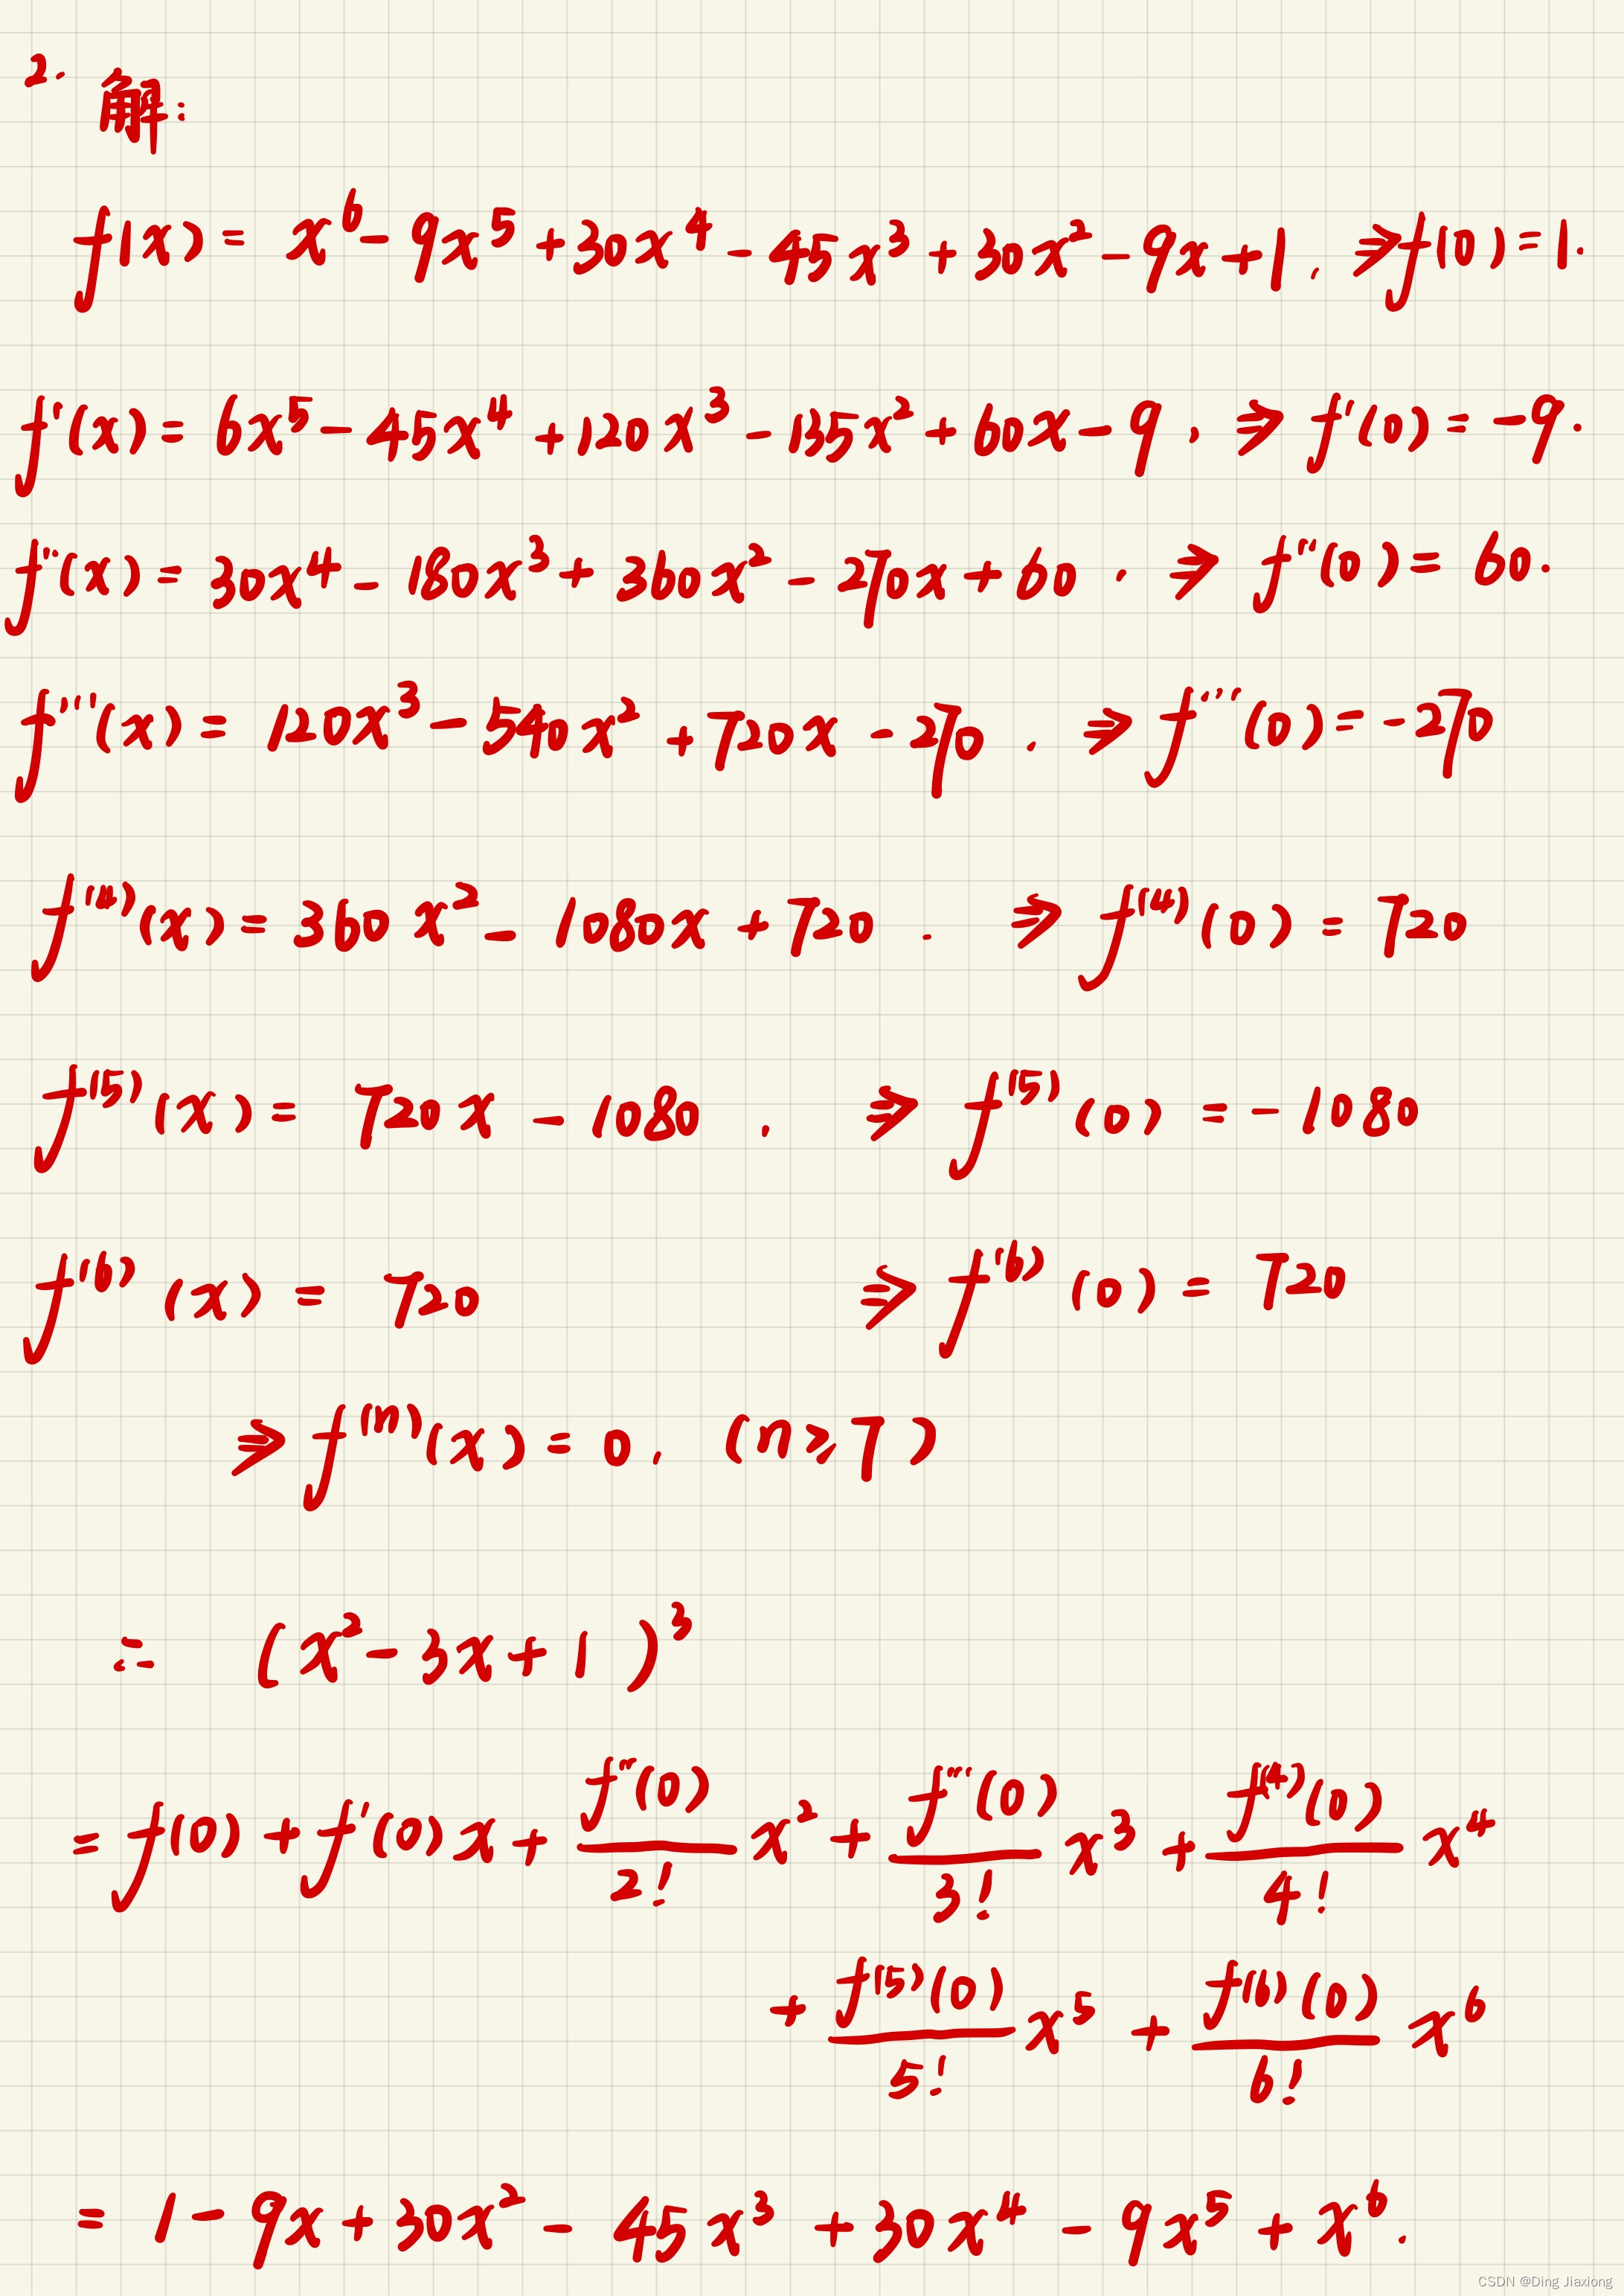 2.
解:
f(x) = x⁶ - 9x⁵ + 30x⁴ - 45x³ + 30x² - 9x + 1. ⇒ f(0) = 1.
f'(x) = 6x⁵ - 45x⁴ + 120x³ - 135x² + 60x - 9. ⇒ f'(0) = -9.
f''(x) = 30x⁴ - 180x³ + 360x² - 270x + 60. ⇒ f''(0) = 60.
f'''(x) = 120x³ - 540x² + 720x - 270. ⇒ f'''(0) = -270
f⁽⁴⁾(x) = 360x² - 1080x + 720. ⇒ f⁽⁴⁾(0) = 720
f⁽⁵⁾(x) = 720x - 1080. ⇒ f⁽⁵⁾(0) = -1080
f⁽⁶⁾(x) = 720 ⇒ f⁽⁶⁾(0) = 720
⇒ f⁽ⁿ⁾(x) = 0. (n ≥ 7)
∴ (x² - 3x + 1)³
= f(0) + f'(0)x + f''(0)/2! x² + f'''(0)/3! x³ + f⁽⁴⁾(0)/4! x⁴
+ f⁽⁵⁾(0)/5! x⁵ + f⁽⁶⁾(0)/6! x⁶
= 1 - 9x + 30x² - 45x³ + 30x⁴ - 9x⁵ + x⁶.
CSDN @Ding Jiaxiong